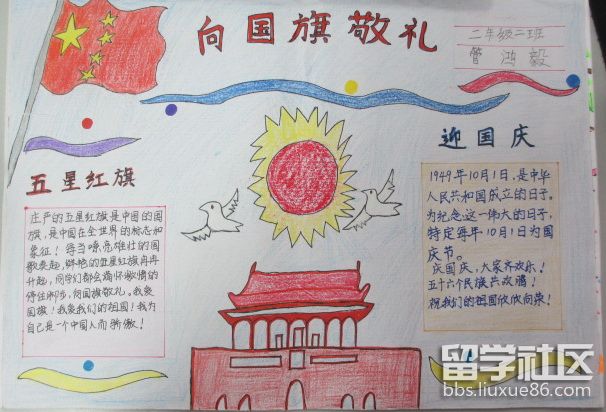 向国旗敬礼
二年级二班
管鸿毅
五星红旗
庄严的五星红旗是中国的国
旗,是中国在全世界的标志和
象征!每当嘹亮雄壮的国
歌奏起,鲜艳的五星红旗冉冉
升起,同学们都会满怀激情的
停住脚步,向国旗敬礼。我爱
国旗!我爱我们的祖国!我为
自己是一个中国人而骄傲!
迎国庆
1949年10月1日,是中华
人民共和国成立的日子。
为纪念这一伟大的日子,
特定每年10月1日为国
庆节。
庆国庆,大家齐欢乐!
五十六个民族共欢腾!
祝我们的祖国欣欣向荣!
留学社区
bbs.liuxue86.com